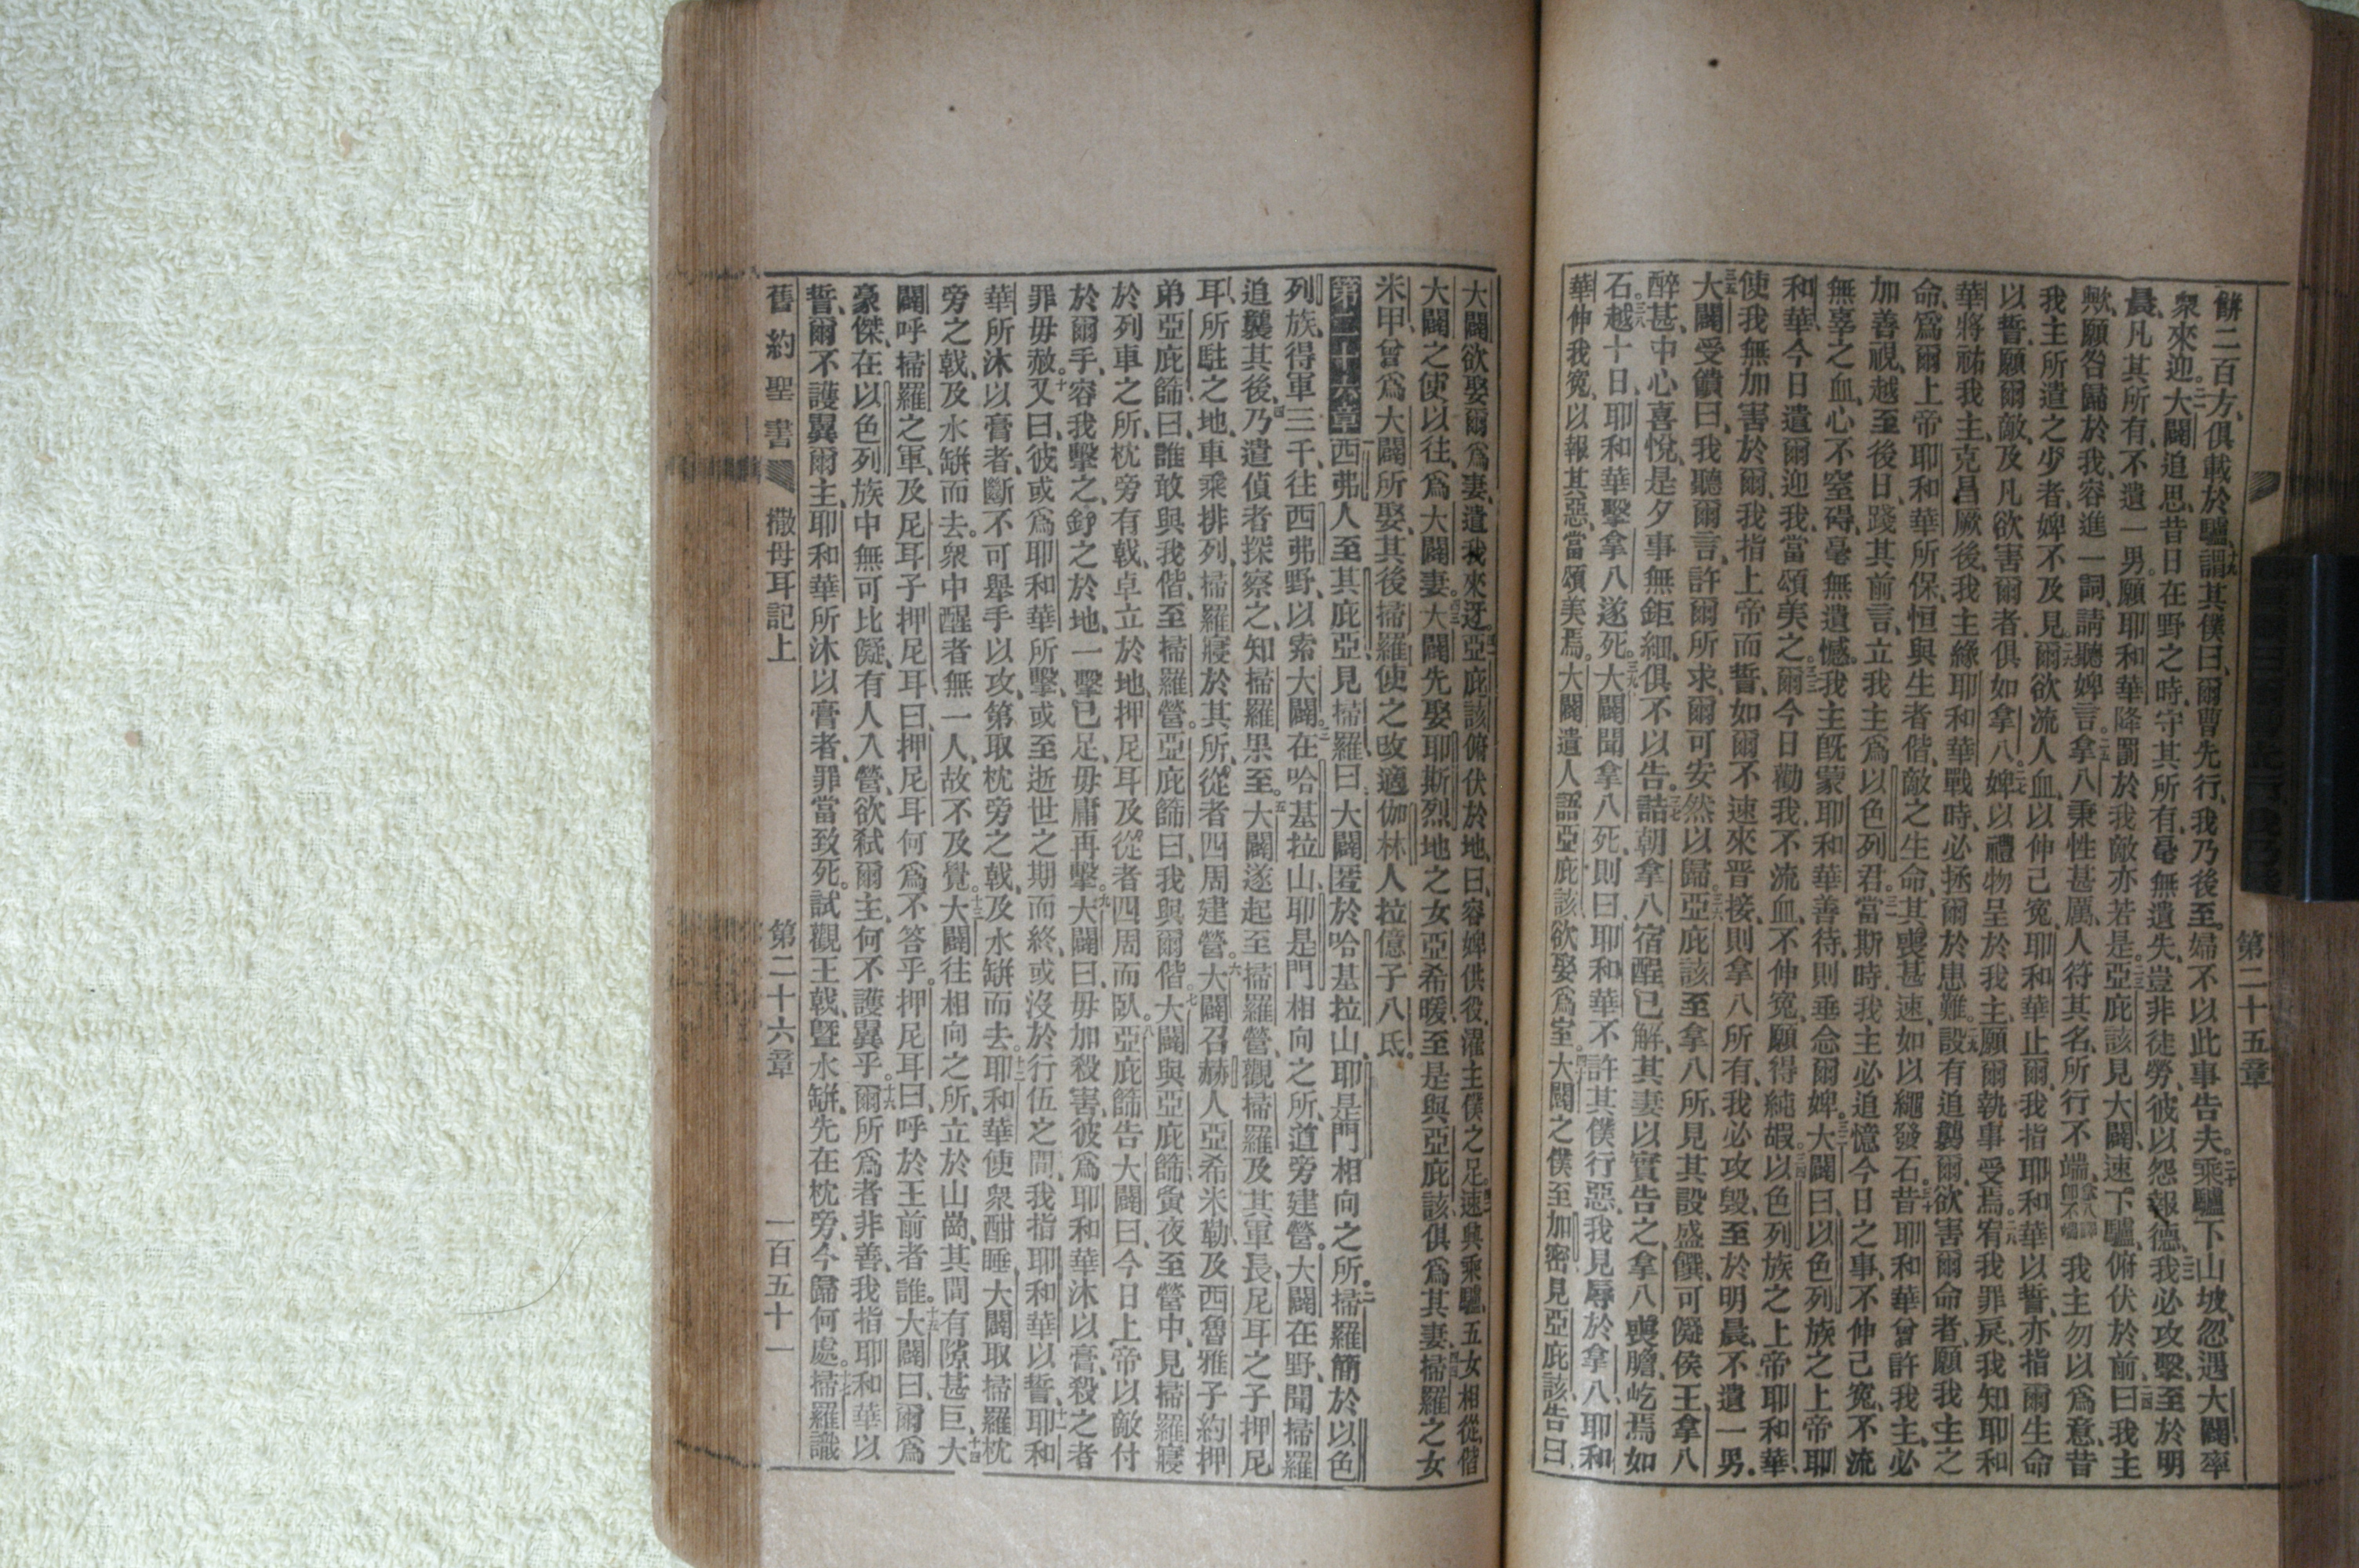 第二十五章
餅二百方、俱載於驢、十九謂其僕曰、爾曹先行、我乃後至。婦不以此事告夫。二十乘驢下山坡、忽遇大闢率
衆來迎。二一大闢追思昔日在野之時、守其所有、毫無遺失、豈非徒勞、彼以怨報德、二二我必攻擊、至於明
晨、凡其所有、不遺一男。願耶和華降罰於我敵亦若是。二三亞庇該見大闢、速下驢、俯伏於前、二四曰、我主
歟、願咎歸於我、容進一詞、請聽婢言。二五拿八秉性甚厲、人符其名、所行不端、拿八譯卽不端我主勿以爲意、昔
我主所遣之少者、婢不及見。二六爾欲流人血、以伸己冤、耶和華止爾、我指耶和華以誓、亦指爾生命
以誓、願爾敵、及凡欲害爾者、俱如拿八。二七婢以禮物呈於我主、願爾執事受焉。二八宥我罪戾、我知耶和
華將祐我主、克昌厥後、我主緣耶和華戰時、必拯爾於患難。二九設有追襲爾、欲害爾命者、願我主之
命、爲爾上帝耶和華所保、恒與生者偕、敵之生命、其喪甚速、如以繩發石。三十昔耶和華曾許我主、必
加善視、越至後日、踐其前言、立我主爲以色列君。三一當斯時、我主必追憶今日之事、不伸己冤、不流
無辜之血、心不窒碍、毫無遺憾。我主旣蒙耶和華善待、則垂念爾婢。三二大闢曰、以色列族之上帝耶
和華、今日遣爾迎我、當頌美之。三三爾今日勸我、不流血、不伸冤、願得純嘏。三四以色列族之上帝耶和華、
使我無加害於爾、我指上帝而誓、如爾不速來晋接、則拿八所有、我必攻毀、至於明晨、不遺一男。
三五大闢受饋曰、我聽爾言、許爾所求、爾可安然以歸。三六亞庇該至拿八所、見其設盛饌、可儗侯王、拿八
醉甚、中心喜悅、是夕事無鉅細、俱不以告。三七詰朝拿八宿醒已解、其妻以實告之、拿八喪膽、屹焉如
石。三八越十日、耶和華擊拿八遂死。三九大闢聞拿八死、則曰、耶和華不許其僕行惡、我見辱於拿八、耶和
華伸我冤、以報其惡、當頌美焉。大闢遣人語亞庇該、欲娶爲室。四十大闢之僕至加密、見亞庇該、告曰、
大闢欲娶爾爲妻、遣我來迓。四一亞庇該俯伏於地、曰、容婢供役、濯主僕之足。四二速與乘驢、五女相從、偕
大闢之使以往、爲大闢妻。四三大闢先娶耶斯烈地之女亞希暖、至是與亞庇該俱爲其妻。四四掃羅之女
米甲、曾爲大闢所娶、其後掃羅使之改適伽林人拉億子八氐。
第二十六章西弗人至其庇亞、見掃羅曰、大闢匿於哈基拉山、耶是門相向之所。二掃羅簡於以色
列族、得軍三千、往西弗野、以索大闢。三在哈基拉山、耶是門相向之所、道旁建營。大闢在野、聞掃羅
追襲其後、四乃遣偵者探察之、知掃羅果至。五大闢遂起、至掃羅營、觀掃羅及其軍長、尼耳之子押尼
耳、所駐之地、車乘排列、掃羅寢於其所、從者四周建營。六大闢召赫人亞希米勒、及西魯雅子約押
弟亞庇篩曰、誰敢與我偕、至掃羅營。亞庇篩曰、我與爾偕。七大闢與亞庇篩夤夜至營中、見掃羅寢
於列車之所、枕旁有戟、卓立於地、押尼耳及從者四周而臥。八亞庇篩告大闢曰、今日上帝以敵付
於爾手、容我擊之、釘之於地、一擊已足、毋庸再擊。九大闢曰、毋加殺害、彼爲耶和華沐以膏、殺之者
罪毋赦。十又曰、彼或爲耶和華所擊、或至逝世之期而終、或沒於行伍之間、我指耶和華以誓、十一耶和
華所沐以膏者、斷不可舉手以攻、第取枕旁之戟、及水缾而去。十二耶和華使衆酣睡、大闢取掃羅枕
旁之戟、及水缾而去。衆中醒者無一人、故不及覺。十三大闢往相向之所、立於山崗、其間有隙甚巨、十四大
闢呼掃羅之軍、及尼耳子押尼耳曰、押尼耳何爲不答乎。押尼耳曰、呼於王前者誰。十五大闢曰、爾爲
豪傑、在以色列族中無可比儗、有人入營、欲弒爾主、何不護翼乎。十六爾所爲者非善、我指耶和華以
誓、爾不護翼爾主、耶和華所沐以膏者、罪當致死。試觀王戟、曁水缾、先在枕旁、今歸何處。十七掃羅識
舊約聖書 撒母耳記上 第二十六章 一百五十一